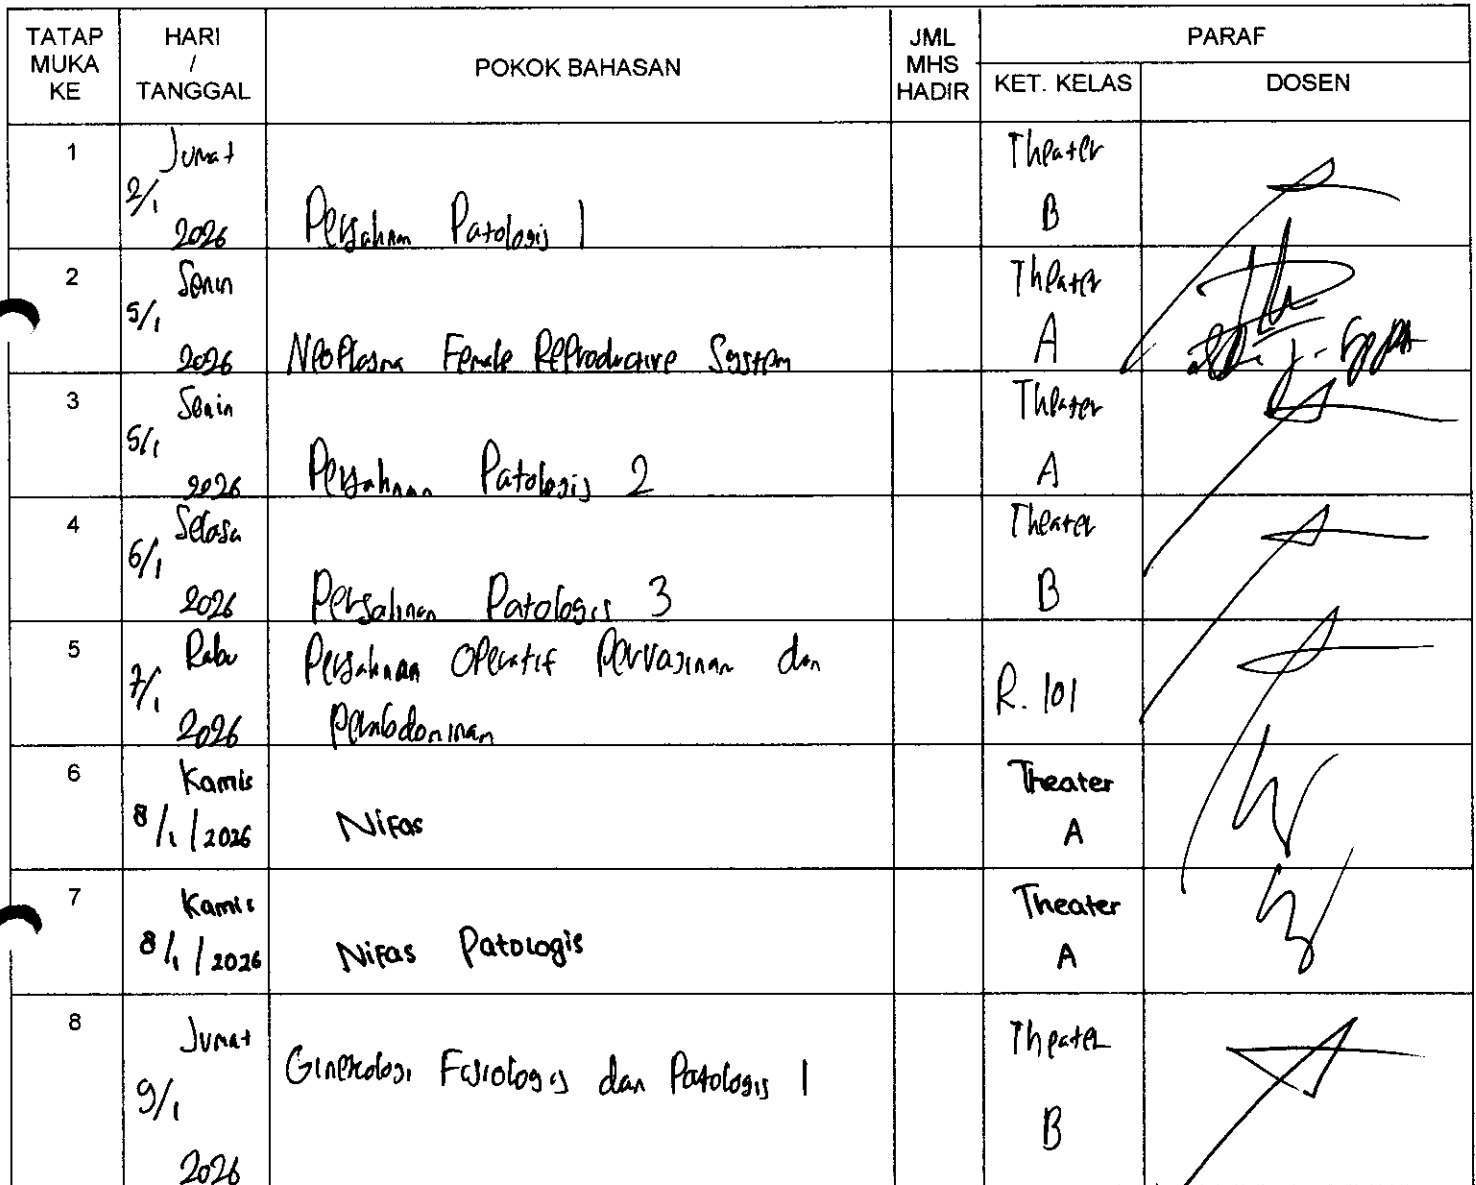 TATAP MUKA KE
HARI / TANGGAL
POKOK BAHASAN
JML MHS HADIR
PARAF
KET. KELAS
DOSEN
1
Jumat
2/1
2026
Persalinan Patologis 1
Theater
B
2
Senin
5/1
2026
Neoplasma Female Reproductive System
Theater
A
3
Senin
5/1
2026
Persalinan Patologis 2
Theater
A
4
Selasa
6/1
2026
Persalinan Patologis 3
Theater
B
5
Rabu
7/1
2026
Persalinan Operatif Pervaginam dan
Perabdominan
R. 101
6
Kamis
8/1/2026
Nifas
Theater
A
7
Kamis
8/1/2026
Nifas Patologis
Theater
A
8
Jumat
9/1
2026
Ginekologi Fisiologis dan Patologis 1
Theater
B